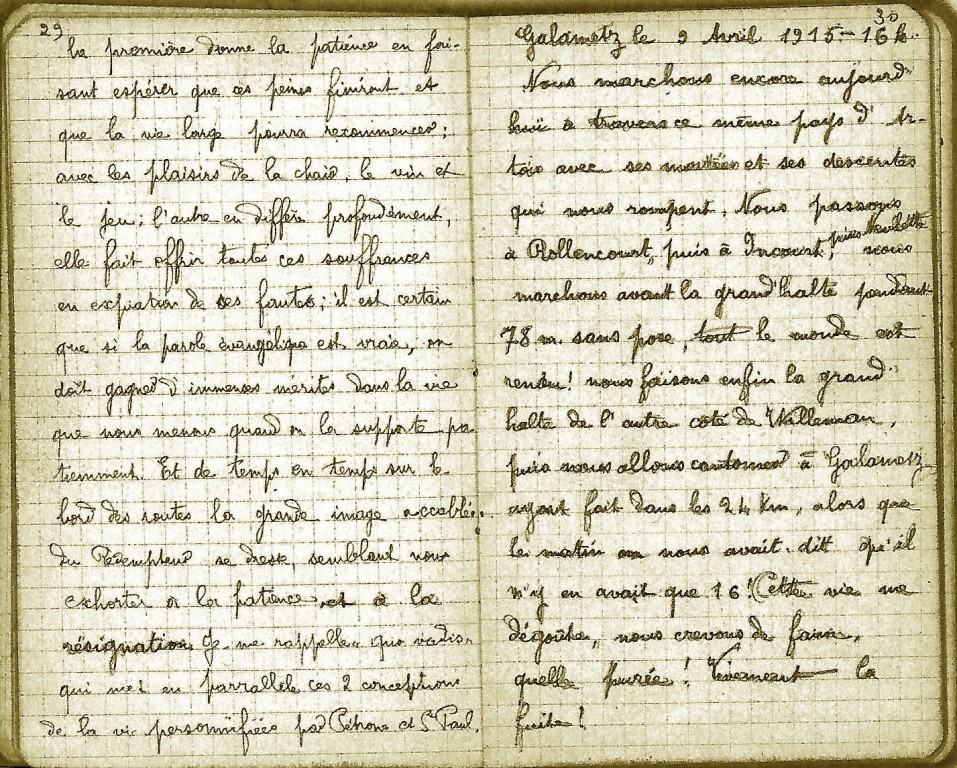 29
la première donne la patience en fai-
sant espérer que ces peines finiront et
que la vie large pourra recommencer;
avec les plaisirs de la chair, le vin et
le jeu; l'autre en diffère profondément,
elle fait offrir toutes ces souffrances
en expiation de ses fautes; il est certain
que si la parole évangélique est vraie, on
doit gagner d'immenses mérites dans la vie
que nous menons quand on la supporte pa-
tiemment. Et de temps en temps sur le
bord des routes la grande image accablée
du Rédempteur se dresse, semblant nous
exhorter à la patience et à la
résignation. Je me rappelle quo vadis
qui met en parrallèle ces 2 conceptions
de la vie personnifiées par Pétrone et St Paul.
30
Galametz le 9 Avril 1915 - 16 h.
Nous marchons encore aujourd'
hui à travers ce même pays d'Ar-
tois avec ses montées et ses descentes
qui nous rompent. Nous passons
à Rollencourt, puis à Incourt, puis Noulette nous
marchons avant la grand'halte pendant
78 m. sans pose, tout le monde est
rendu! nous faisons enfin la grand'
halte de l'autre côté de Willeman,
puis nous allons cantonner à Galametz
ayant fait dans les 24 Km, alors que
le matin on nous avait dit qu'il
n'y en avait que 16! Cette vie me
dégoûte, nous crevons de faim,
quelle purée! Vivement la
fuite!